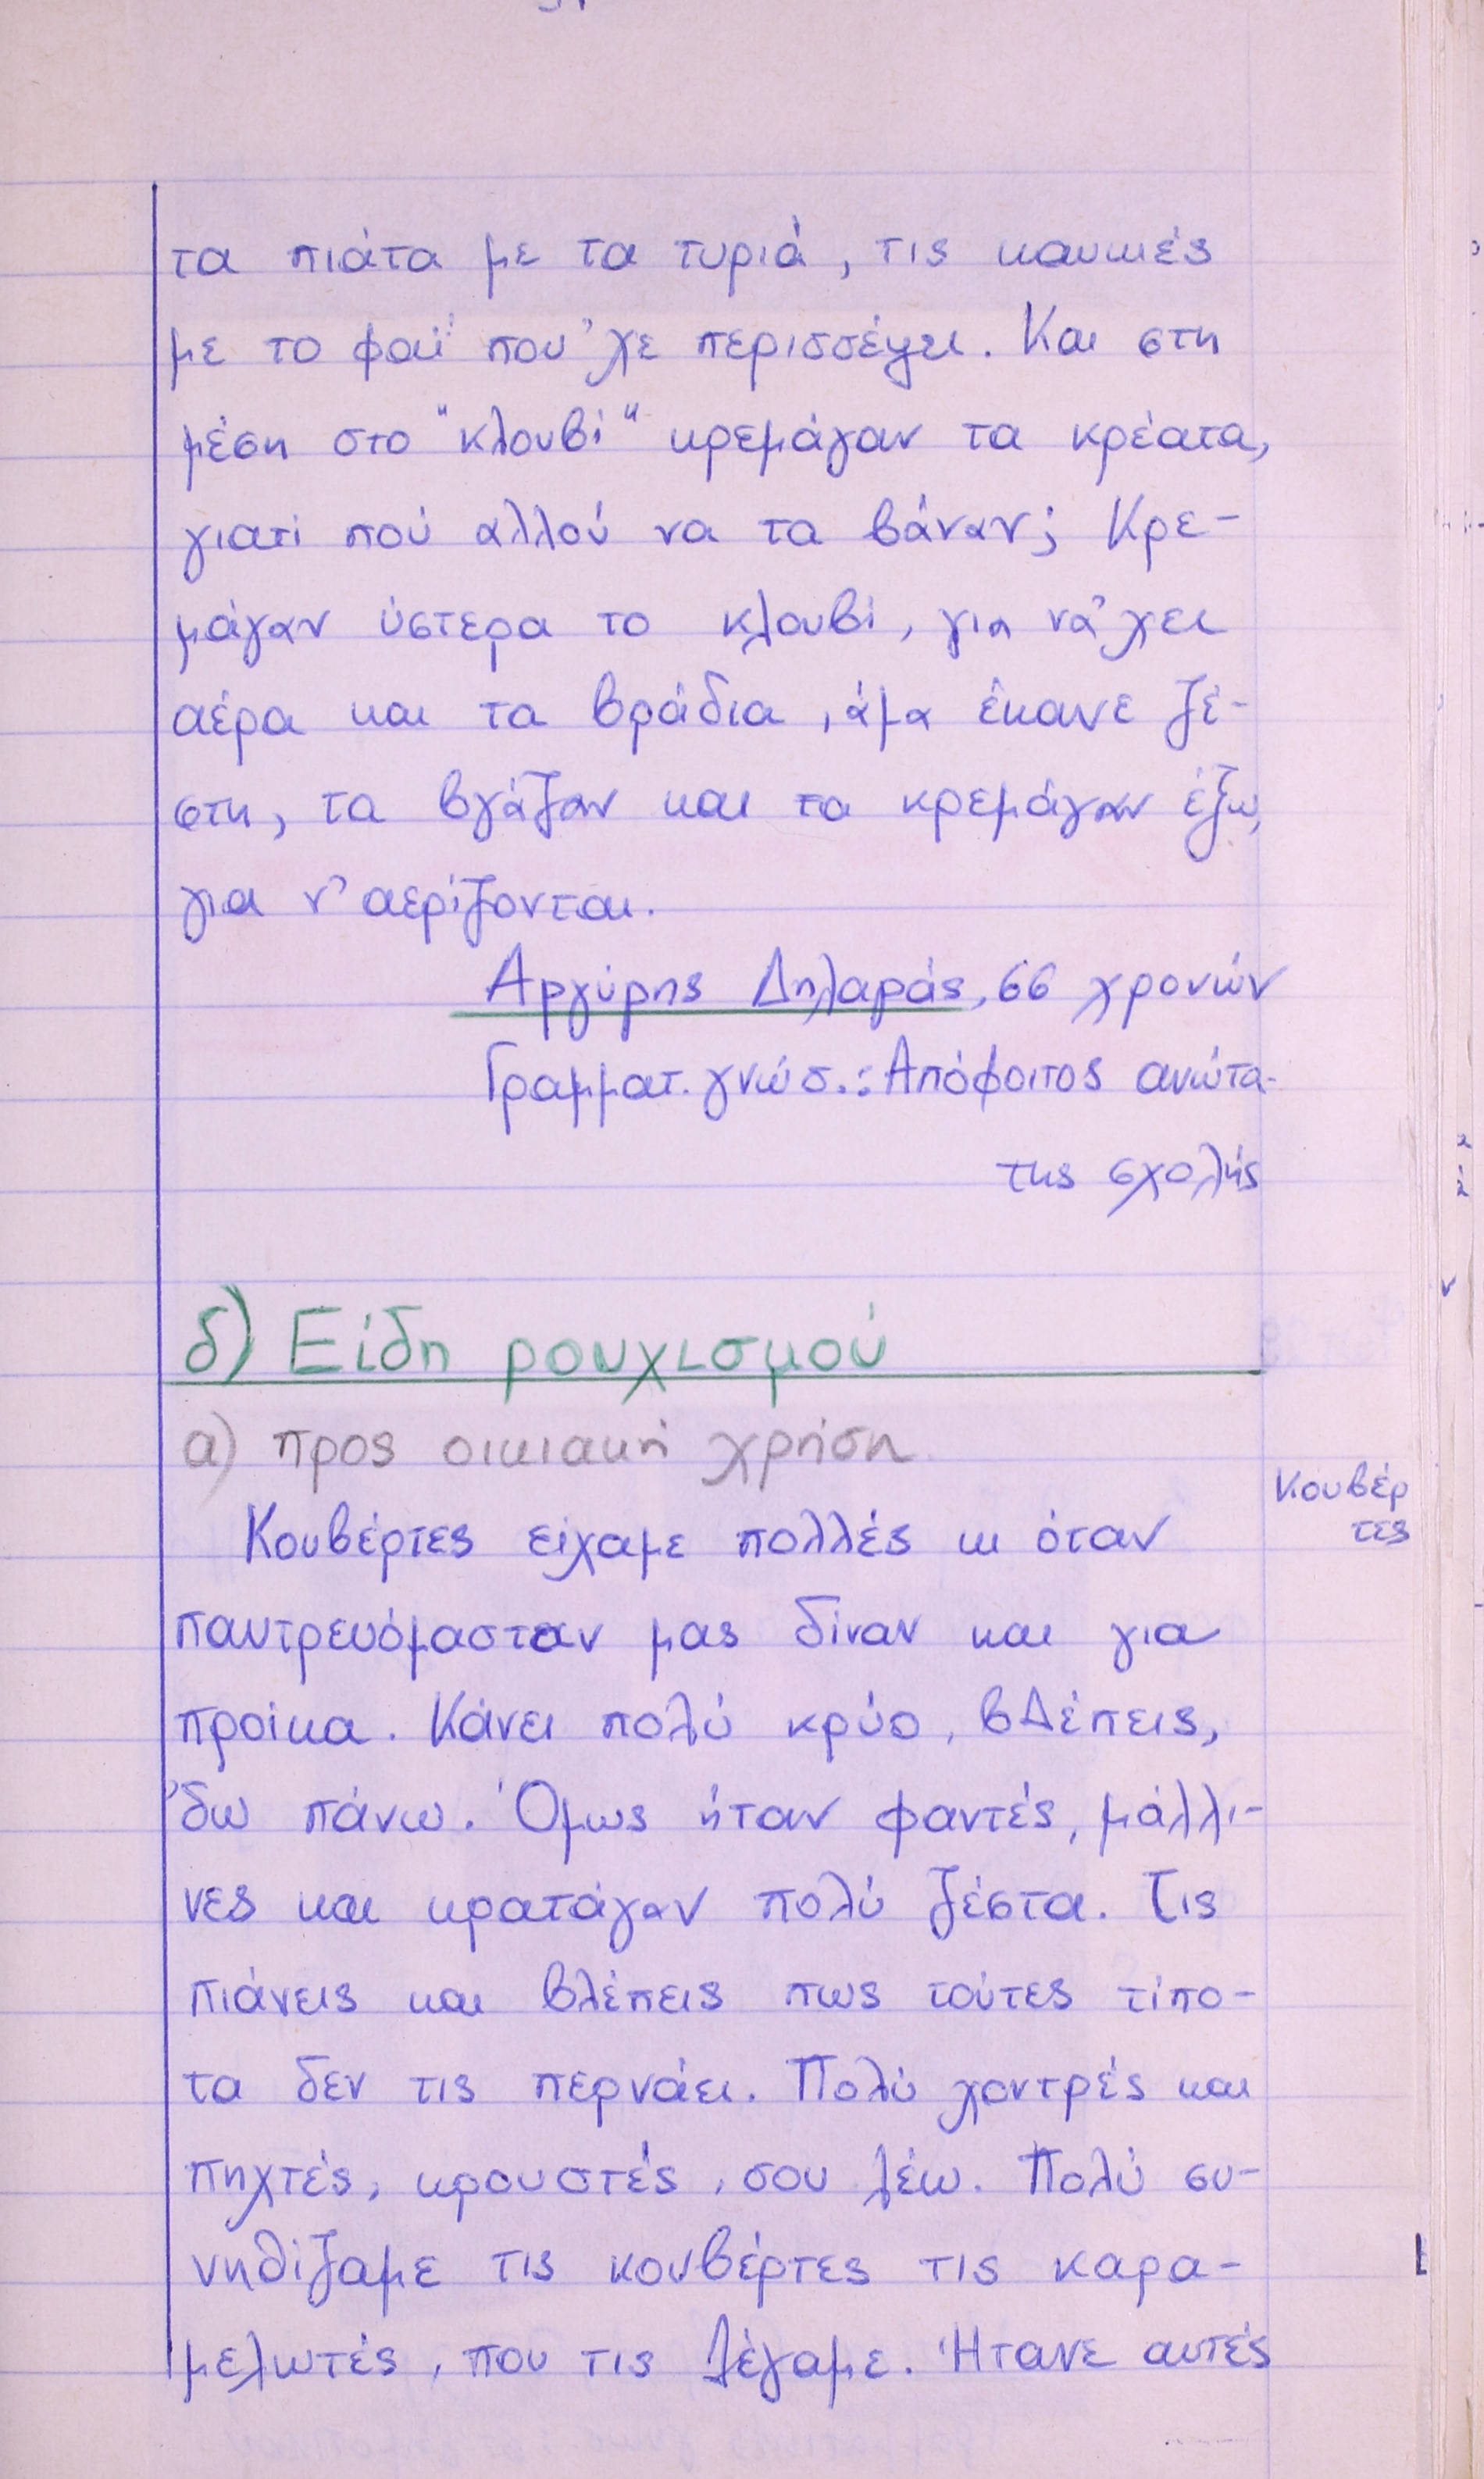 τα πιάτα με τα τυριά, τις κακκιές
με το φαΐ που 'χε περισσέψει. Και στη
μέση στο "κλουβί" κρεμάγαν τα κρέατα,
γιατί πού αλλού να τα βάναν; Κρε-
μάγαν ύστερα το κλουβί, για νά 'χει
αέρα και τα βράδια, άμα έκανε ζέ-
στη, τα βγάζαν και τα κρεμάγαν έξω,
για ν' αερίζονται.
Αργύρης Δηλαράς, 66 χρονών
Γραμματ. γνώσ.: Απόφοιτος ανώτα-
της σχολής
δ) Είδη ρουχισμού
α) προς οικιακή χρήση
Κουβέρ
τες
Κουβέρτες είχαμε πολλές κι όταν
παντρευόμασταν μας δίναν και για
προίκα. Κάνει πολύ κρύο, βλέπεις,
'δω πάνω. Όμως ήταν φαντές, μάλλι-
νες και κρατάγαν πολύ ζέστα. Τις
πιάνεις και βλέπεις πως τούτες τίπο-
τα δεν τις περνάει. Πολύ χοντρές και
πηχτές, κρουστές, σου λέω. Πολύ συ-
νηθίζαμε τις κουβέρτες τις καρα-
μελωτές, που τις λέγαμε. Ήτανε αυτές